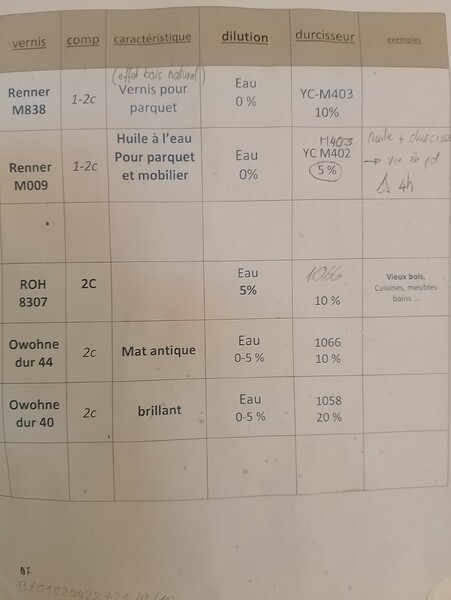 vernis comp caractéristique dilution durcisseur exemples
(effet bois naturel)
Renner M838 1-2c Vernis pour parquet Eau 0 % YC-M403 10%
Renner M009 1-2c Huile à l'eau Pour parquet et mobilier Eau 0% M403 YC M402 5 % huile + durcisse → vie en pot ⚠ 4h
ROH 8307 2C Eau 5% 1066 10 % Vieux bois, Cuisines, meubles bains ...
Owohne dur 44 2c Mat antique Eau 0-5 % 1066 10 %
Owohne dur 40 2c brillant Eau 0-5 % 1058 20 %
07